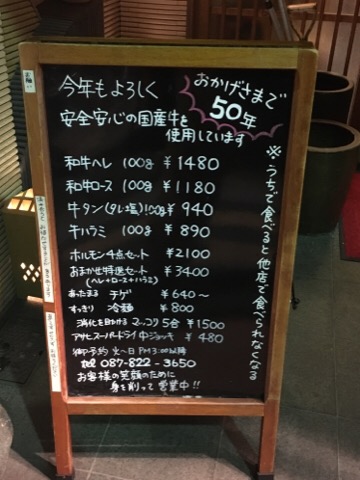 今年もよろしく
おかげさまで
50年
安全安心の国産牛を
使用しています
和牛ヘレ 100g ¥1480
和牛ロース 100g ¥1180
牛タン(タレ塩)100g ¥940
牛ハラミ 100g ¥890
ホルモン4点セット ¥2100
おまかせ特選セット ¥3400
(ヘレ+ロース+ハラミ)
あったまる チゲ ¥640〜
すっきり 冷麺 ¥800
消化を助ける マッコリ 5合 ¥1500
アサヒスーパードライ 中ジョッキ ¥480
御予約 火〜日 PM3:00以降
TEL 087-822-3650
お客様の笑顔のために
身を削って営業中!!
※うちで食べると他店で食べられなくなる